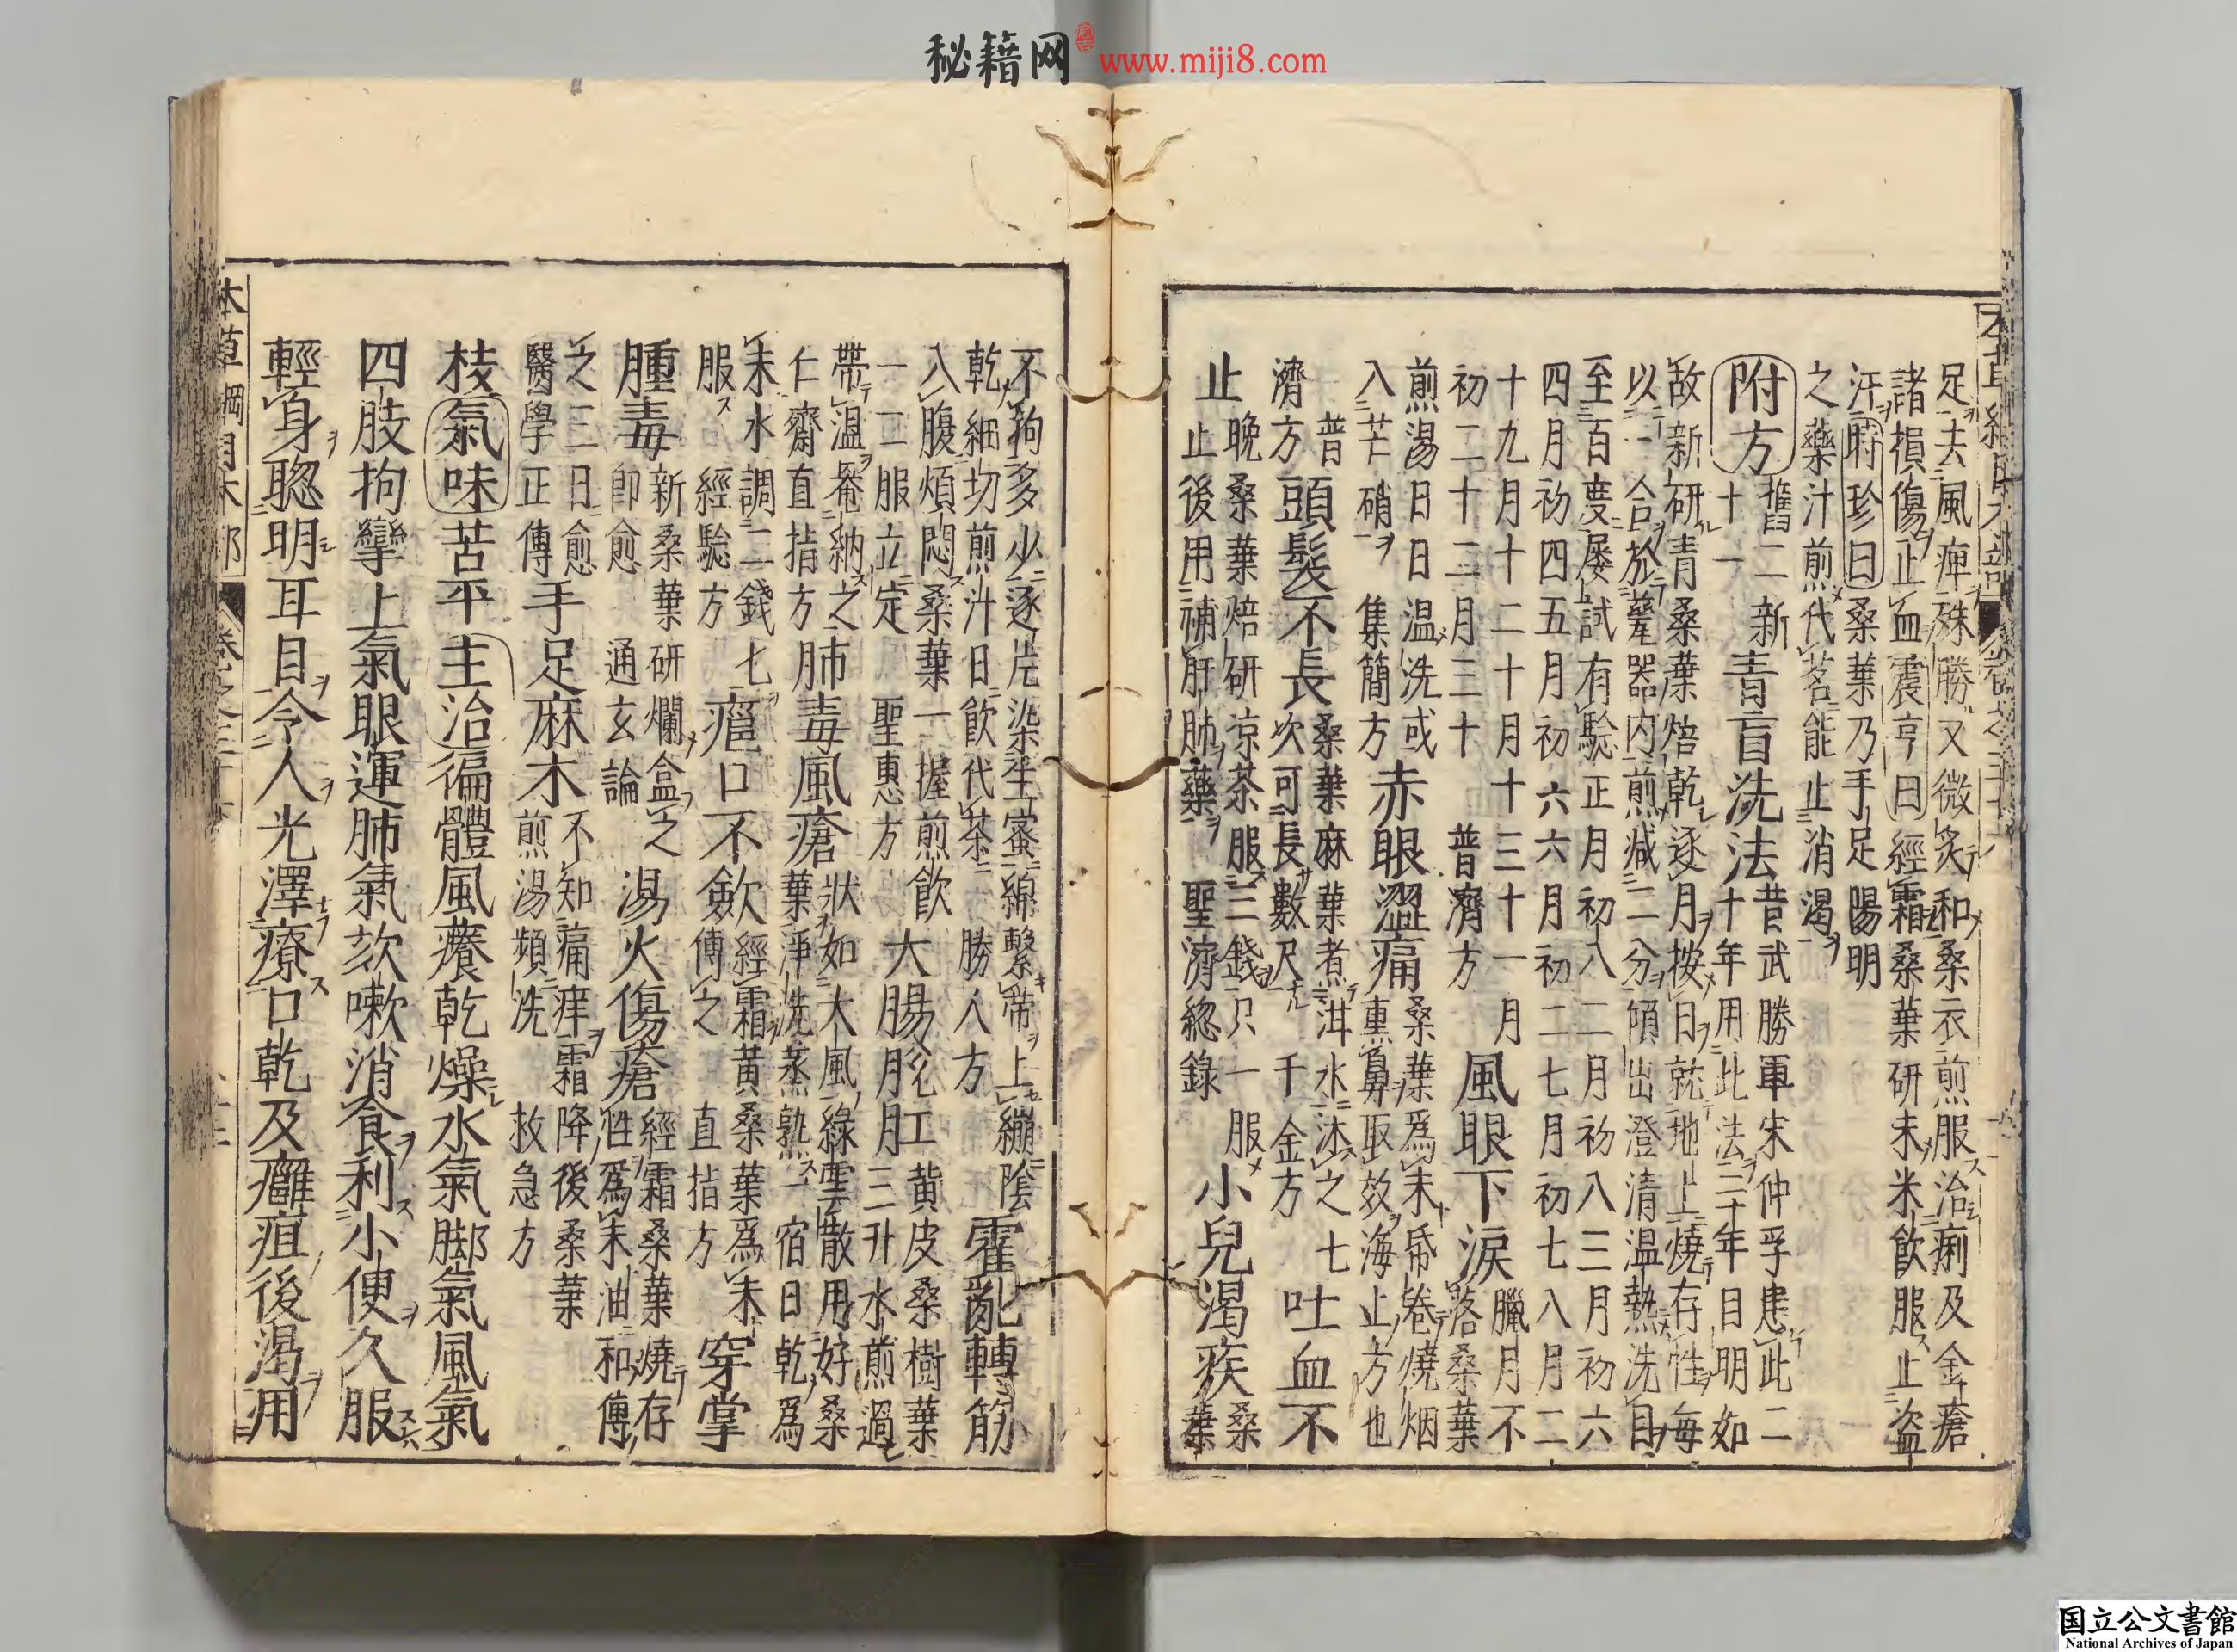 秘籍网 www.miji8.com
足去風痺殊勝又微炙和桑衣煎服治痢及金瘡
諸損傷止血震亨曰經霜桑葉研末米飲服止盜
汗時珍曰桑葉乃手足陽明
之藥汁煎代茗能止消渴
附方
舊二新
十一
青盲洗法
昔武勝軍宋仲孚患此二
十年用此法二十年目明如
故新研青桑葉焙乾逐月按日就地上燒存性每
以一合於甆器内煎減二分傾出澄清温熱洗目
至百度屢試有驗正月初八二月初八三月初六
四月初四五月初六六月初二七月初七八月二
十九月十二十月十三十一月
初二十二月三十
普濟方
風眼下淚
臘月不
落桑葉
煎湯日日温洗或
入芒硝
集簡方
赤眼澀痛
桑葉爲末昏卷燒烟
熏鼻取效海止方也
頭髮不長
桑葉麻葉煮泔水沐之七
次可長數尺
千金方
吐血不
止
晚桑葉焙研凉茶服三錢只一服
止後用補肝肺藥
聖濟總錄
小兒渴疾
桑
葉
不拘多少逐片染生蜜綿繫蒂上繃陰
乾細切煎汁日飲代茶
勝人方
霍亂轉筋
入腹煩悶桑葉一握煎飲
一二服立定
聖惠方
大腸脫肛
黄皮桑樹葉
三升水煎過
帶温罨納之
仁齋直指方
肺毒風瘡
狀如大風綠雲散用好桑
葉淨洗蒸熟一宿日乾爲
末水調二錢七
服
經驗方
癰口不斂
經霜黄桑葉爲末
傅之
直指方
穿掌
腫毒
新桑葉研爛盦之
即愈
通玄論
湯火傷瘡
經霜桑葉燒存
性爲末油和傅
之三日愈
醫學正傳
手足麻木
不知痛痒霜降後桑葉
煎湯頻洗
救急方
枝氣味苦平主治徧體風癢乾燥水氣脚氣風氣
四肢拘攣上氣眼運肺氣欬嗽消食利小便久服
輕身聰明耳目令人光澤療口乾及癰疽後渴用
本草綱目木部
卷之三十六
国立公文書館
National Archives of Japan